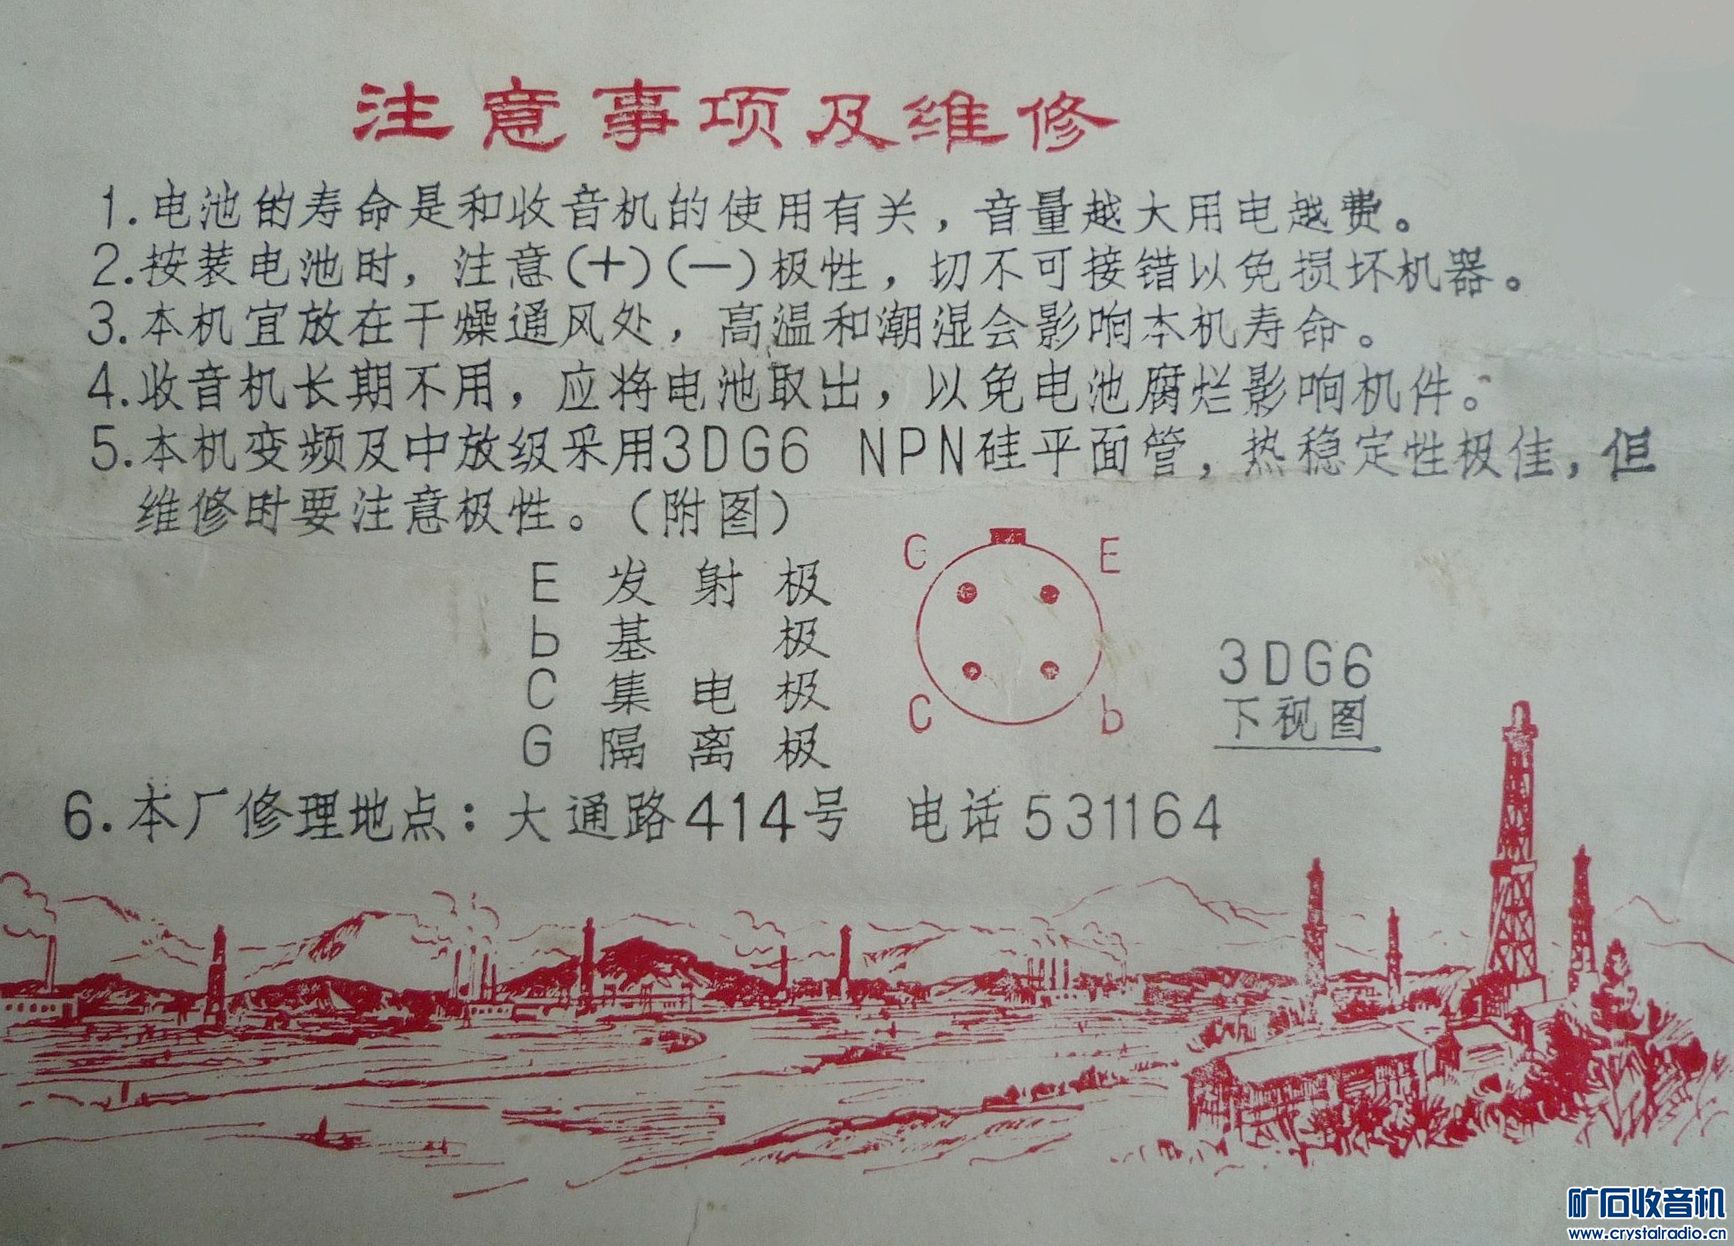 注意事项及维修
1.电池的寿命是和收音机的使用有关，音量越大用电越费。
2.按装电池时，注意(+)(—)极性，切不可接错以免损坏机器。
3.本机宜放在干燥通风处，高温和潮湿会影响本机寿命。
4.收音机长期不用，应将电池取出，以免电池腐烂影响机件。
5.本机变频及中放级采用3DG6 NPN硅平面管，热稳定性极佳，但
维修时要注意极性。（附图）
E 发射极
b 基极
C 集电极
G 隔离极
G E
C b
3DG6
下视图
6.本厂修理地点：大通路414号 电话531164
矿石收音机
www.crystalradio.cn